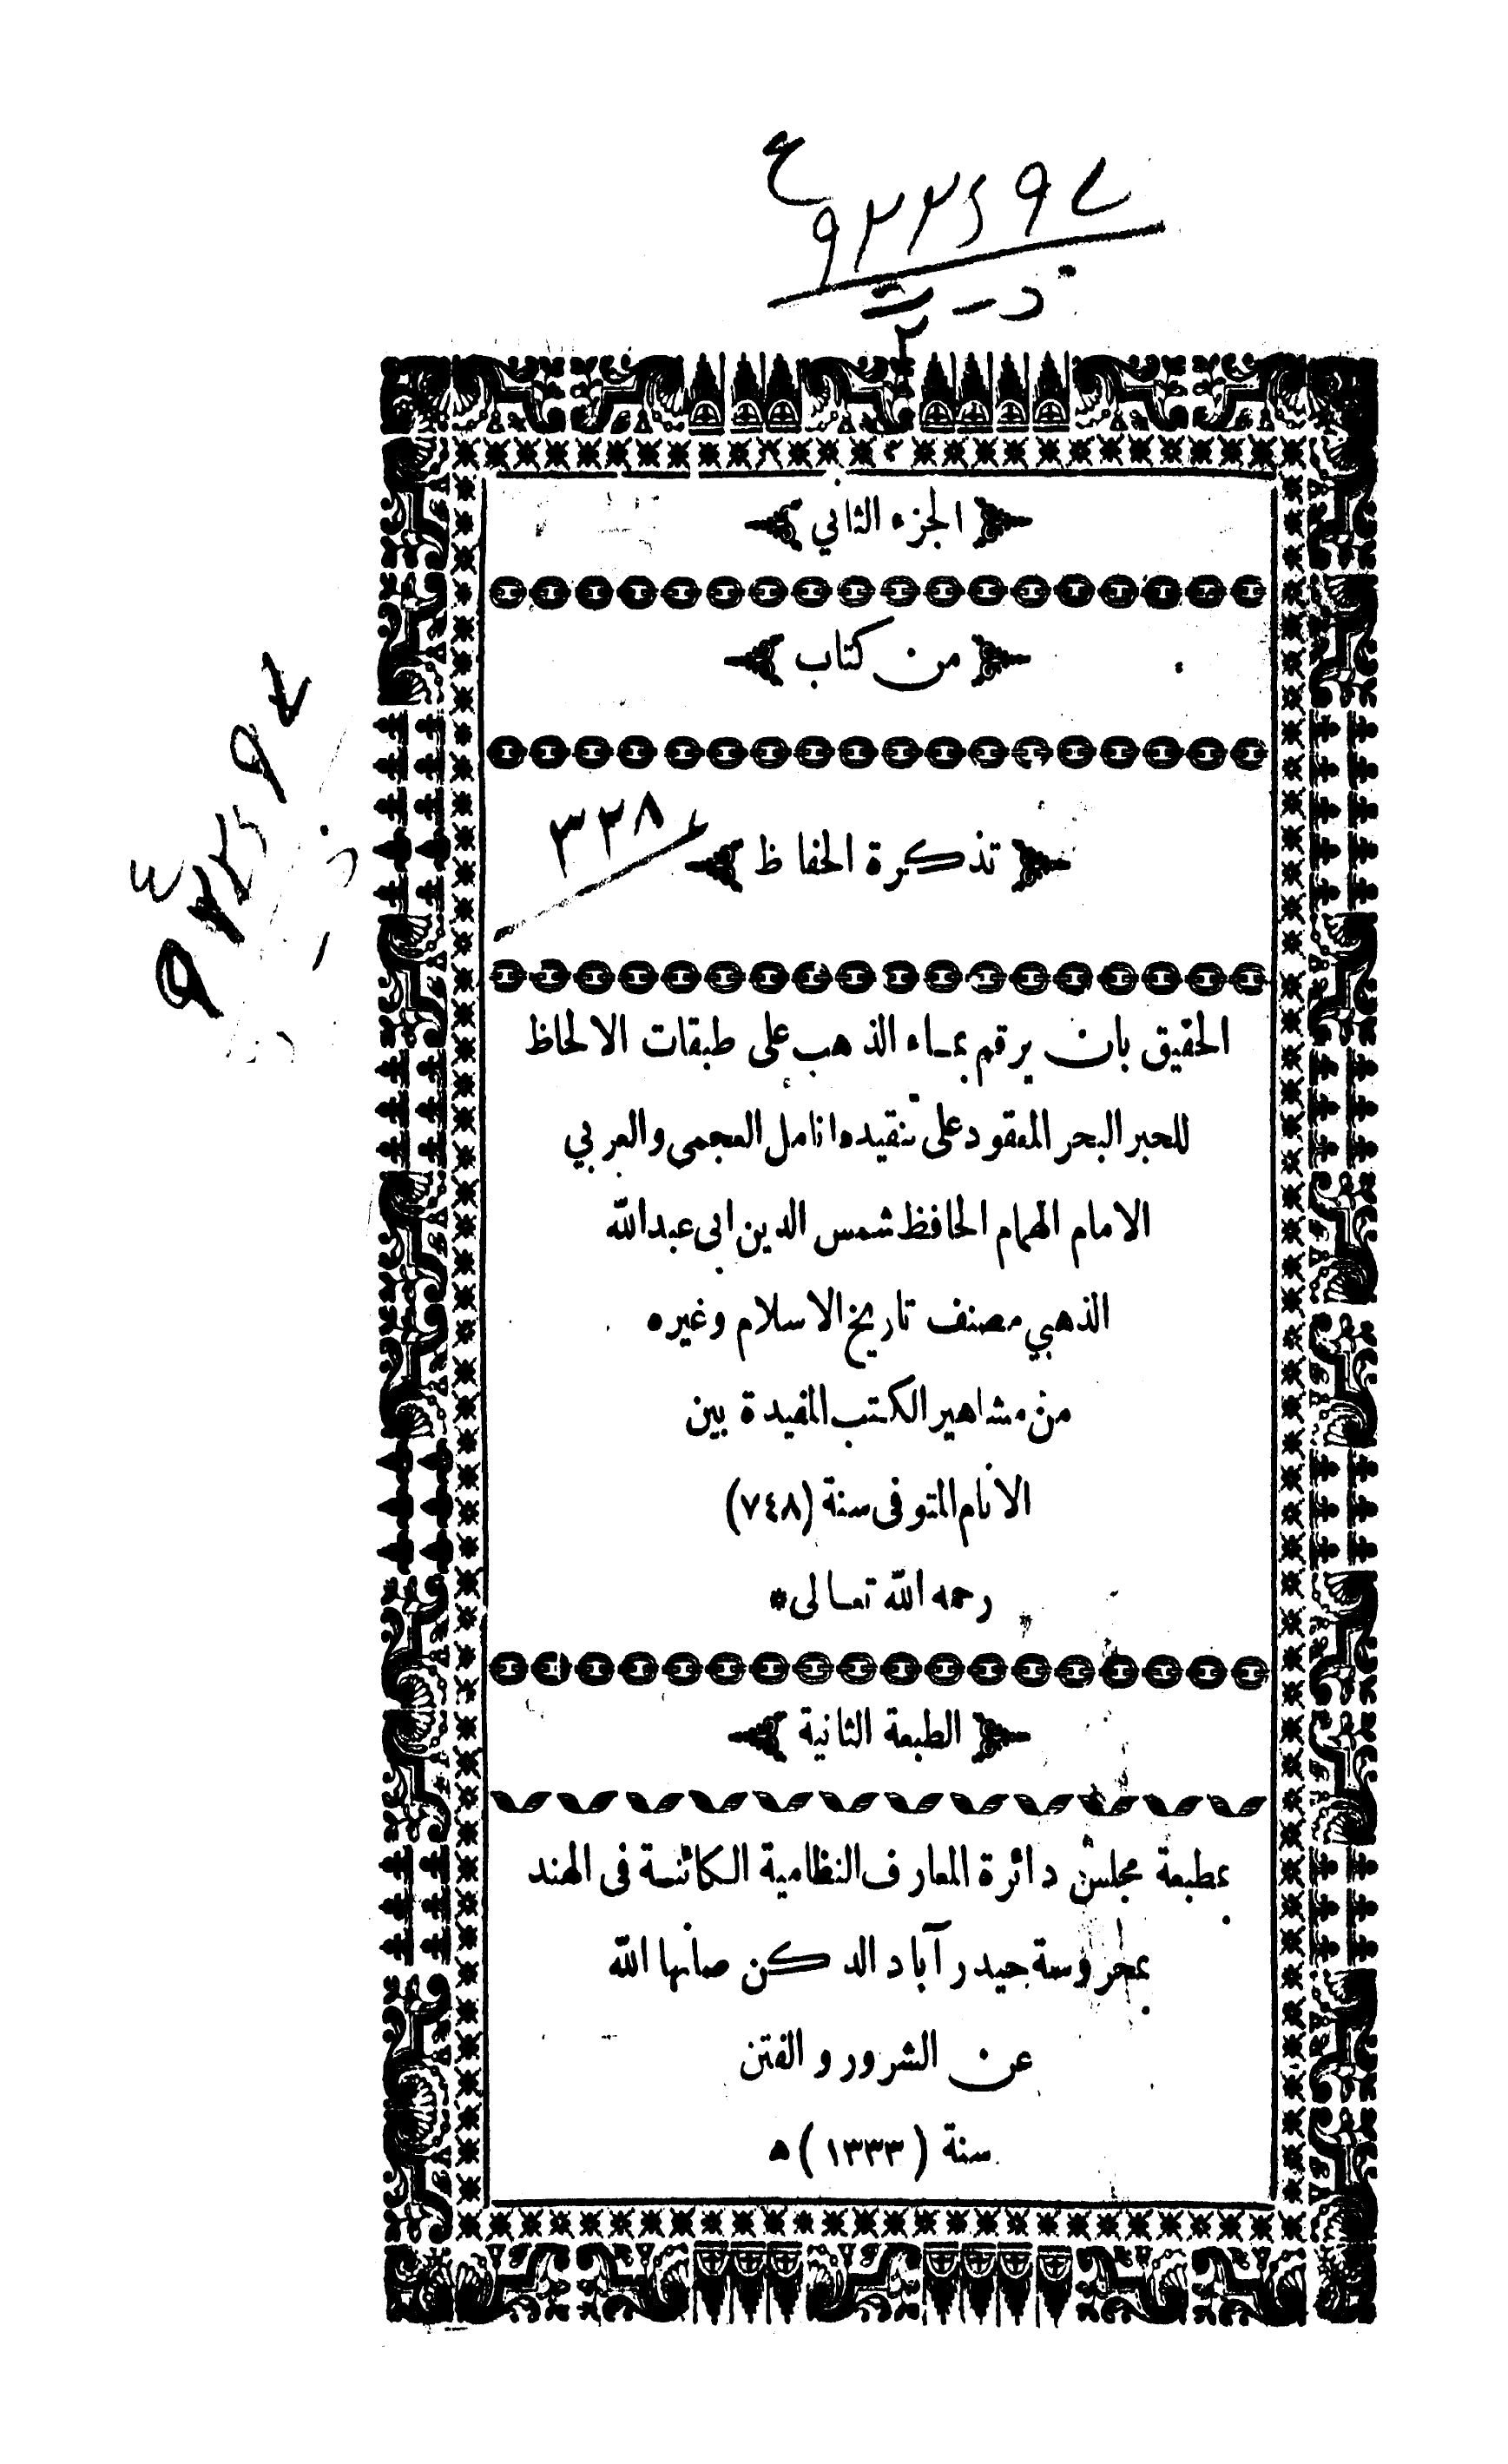 الجزء الثاني
من كتاب
تذكرة الحفاظ
٣٣٨٤
الحقيق بان يرقم بماء الذهب على طبقات الالحاظ
للحبر البحر المعقود على تنقيده انامل العجمى والعربي
الامام الهمام الحافظ شمس الدين ابى عبدالله
الذهبي مصنف تاريخ الاسلام وغيره
من مشاهير الكتب المفيدة بين
الانام المتوفى سنة (٧٤٨)
رحمه الله تعالى*
الطبعة الثانية
بمطبعة مجلس دائرة المعارف النظامية الكائنة فى الهند
بمحروسة حيدرآباد الدكن صانها الله
عن الشرور والفتن
سنة (١٣٣٣) ه